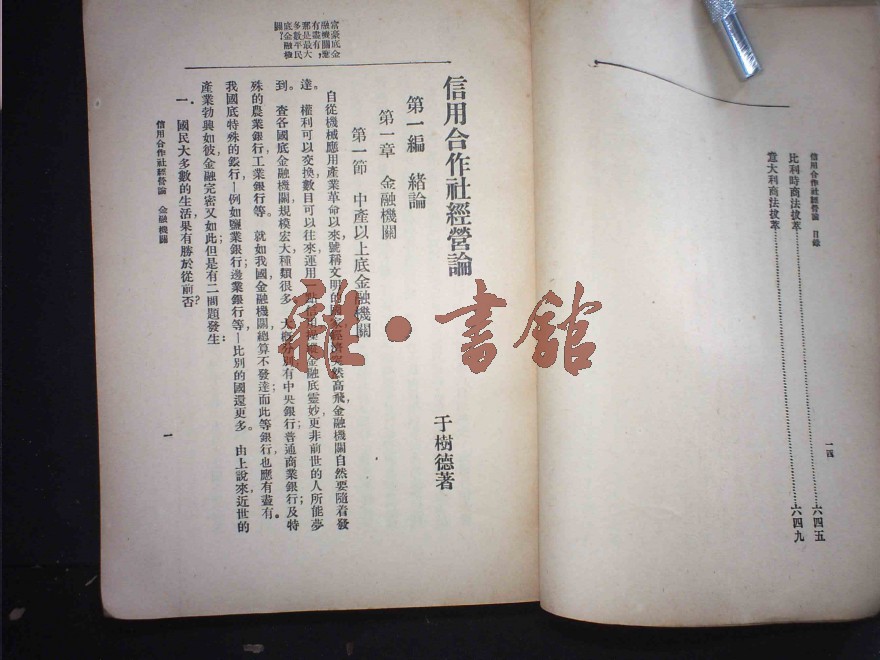 信用合作社經營論 目錄
比利時商法拔萃 六四五
意大利商法拔萃 六四九
一四
富豪底金
融機關應
有盡有，
那是最大
多數平民
底金融極
關？
信用合作社經營論
于樹德著
第一編 緒論
第一章 金融機關
第一節 中產以上底金融機關
自從機械應用產業革命以來，號稱文明的國家經濟突然高飛，金融機關自然要隨着發
達。權利可以交換，數目可以往來，運用一點信用，操縱金融底靈妙，更非前世的人所能夢
到。查各國底金融機關，規模宏大，種類很多，大概分別有中央銀行；普通商業銀行；及特
殊的農業銀行，工業銀行等。就如我國金融機關，總算不發達，而此等銀行，也應有盡有。
我國底特殊的銀行—例如鹽業銀行；邊業銀行；等—比別的國還更多。由上說來，近世的
產業勃興如彼，金融完密又如此，但是有二問題發生：
一．國民大多數的生活果有勝於從前否？
信用合作社經營論 金融機關
一
雜·書館